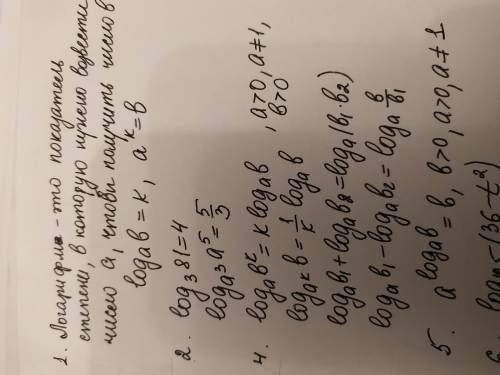 1. Логарифм - это показатель
степени, в которую нужно возвести
число a, чтобы получить число b
log_a b = k, a^k = b
2. log_3 81 = 4
log_{a^3} a^5 = 5/3
4. log_a b^k = k log_a b, a>0, a≠1,
b>0
log_{a^k} b = 1/k log_a b
log_a b_1 + log_a b_2 = log_a (b_1 · b_2)
log_a b_1 - log_a b_2 = log_a b/b_1
5. a^{log_a b} = b, b>0, a>0, a≠1